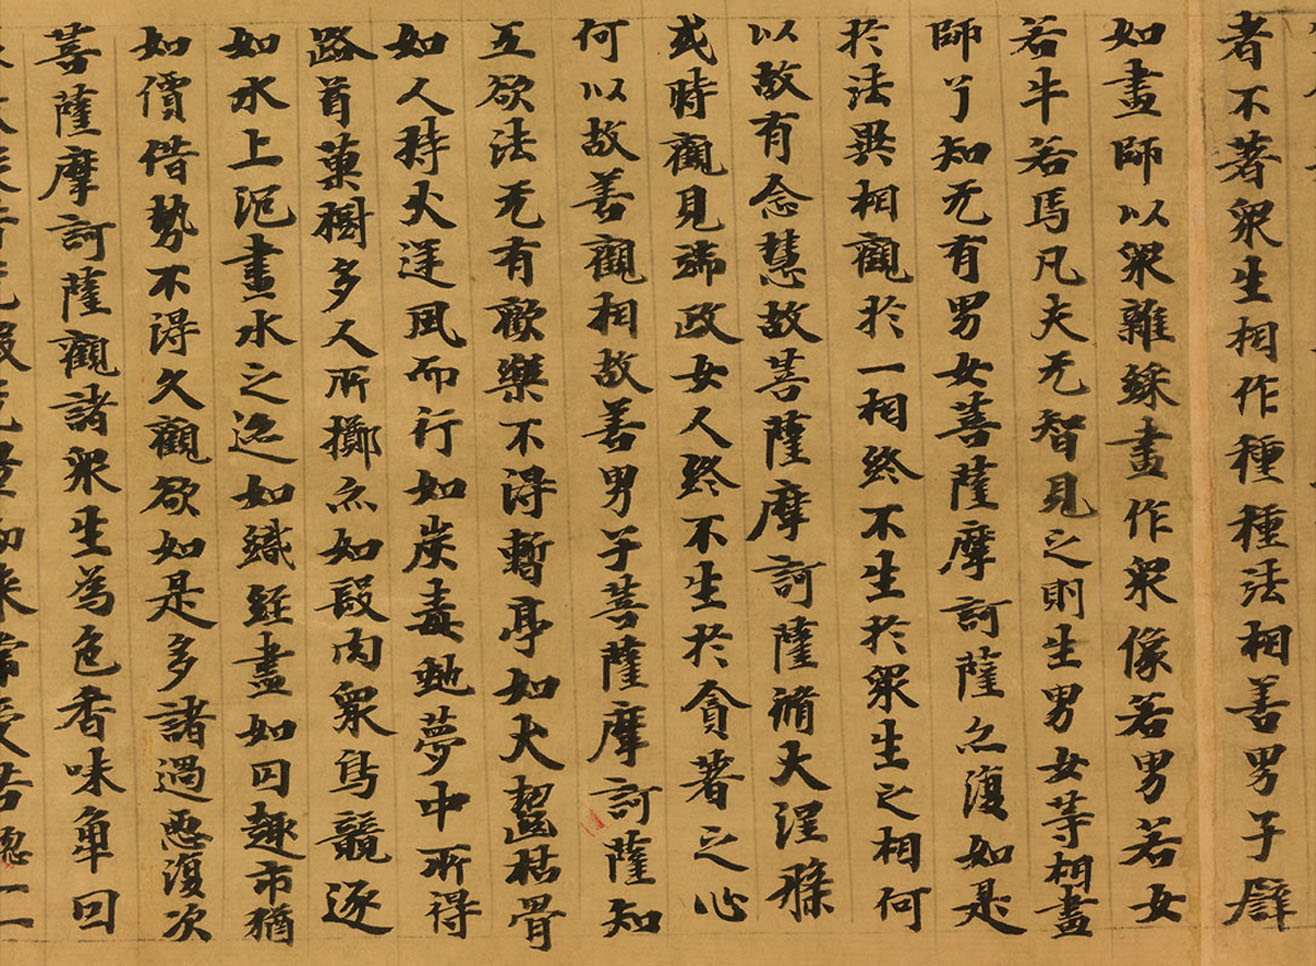 者不著眾生相作種種法相善男子辟
如畫師以眾雜綵畫作眾像若男若女
若牛若馬凡夫无智見之則生男女等相畫
師了知无有男女菩薩摩訶薩亦復如是
於法異相觀於一相終不生於眾生之相何
以故有念慧故菩薩摩訶薩脩大涅槃
或時觀見端政女人終不生於貪著之心
何以故善觀相故善男子菩薩摩訶薩知
五欲法无有歡樂不得暫亭如犬齧枯骨
如人持火逆風而行如炭毒虵夢中所得
路首菓樹多人所擲亦如段肉眾鳥競逐
如水上泡畫水之迹如織經盡如囚趣市猶
如價借勢不得久觀欲如是多諸過惡復次
菩薩摩訶薩觀諸眾生為色香味
來常受苦惱一一